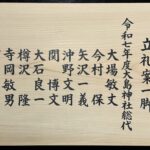 立礼案一脚
令和七年度大島神社総代
大場敏文
今村保
矢沢一義
沖野文明
関博文
大石良一
樽沢隆
寺岡敏男